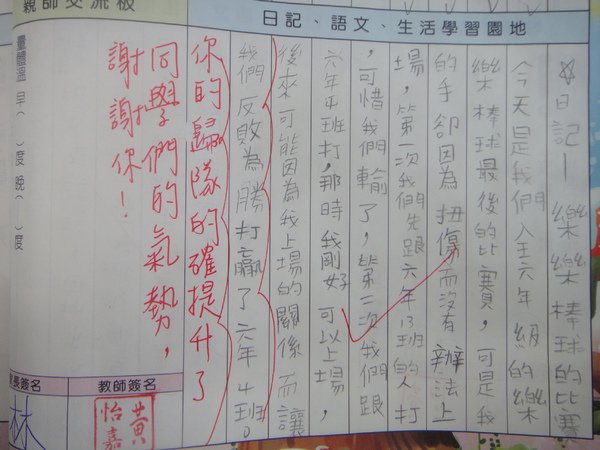 親師交流板
日記、語文、生活學習園地
☆日記—樂樂棒球的比賽
今天是我們全六年級的樂
樂棒球最後的比賽，可是我
的手卻因為扭傷而沒有辦法上
場，第一次我們先跟六年13班的人打
，可惜我們輸了，第二次我們跟
六年4班打，那時我剛好可以上場，
後來可能因為我上場的關係而讓
我們反敗為勝打贏了六年4班。
你的歸隊的確提升了
同學們的氣勢，
謝謝你！
量體溫 早（ ）度 晚（ ）度
教師簽名
長簽名
黃怡嘉
林